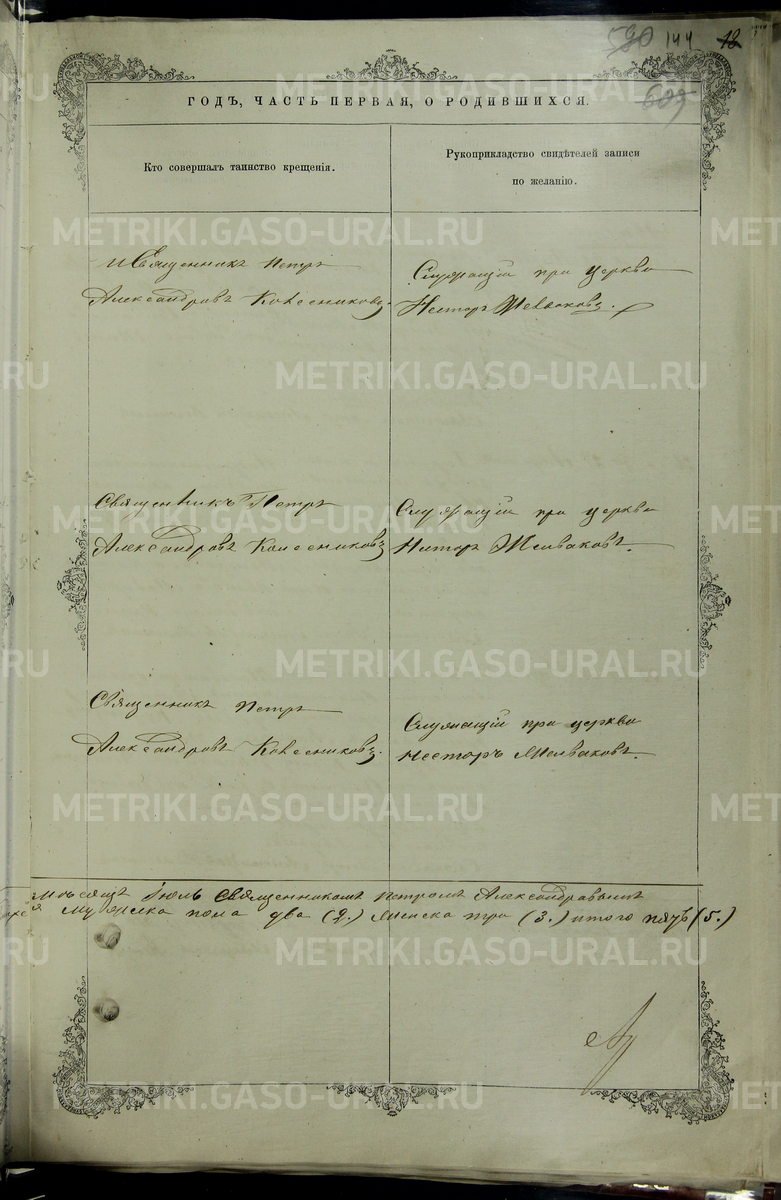 590 144 18
609
ГОДЪ, ЧАСТЬ ПЕРВАЯ, О РОДИВШИХСЯ.
Кто совершалъ таинство крещенія.
Рукоприкладство свидѣтелей записи
по желанію.
Священникъ Петръ
Александровъ Колесниковъ.
Служащій при церкви
Несторъ Желваковъ.
Священникъ Петръ
Александровъ Колесниковъ
Служащій при церкви
Нестор Желваковъ.
Священникъ Петръ
Александровъ Колесниковъ.
Служащій при церкви
Несторъ Желваковъ.
мѣсяцъ Іюль Священникомъ Петромъ Александровымъ
мужеска пола два (2.) женска три (3.) итого пять (5.)
METRIKI.GASO-URAL.RU